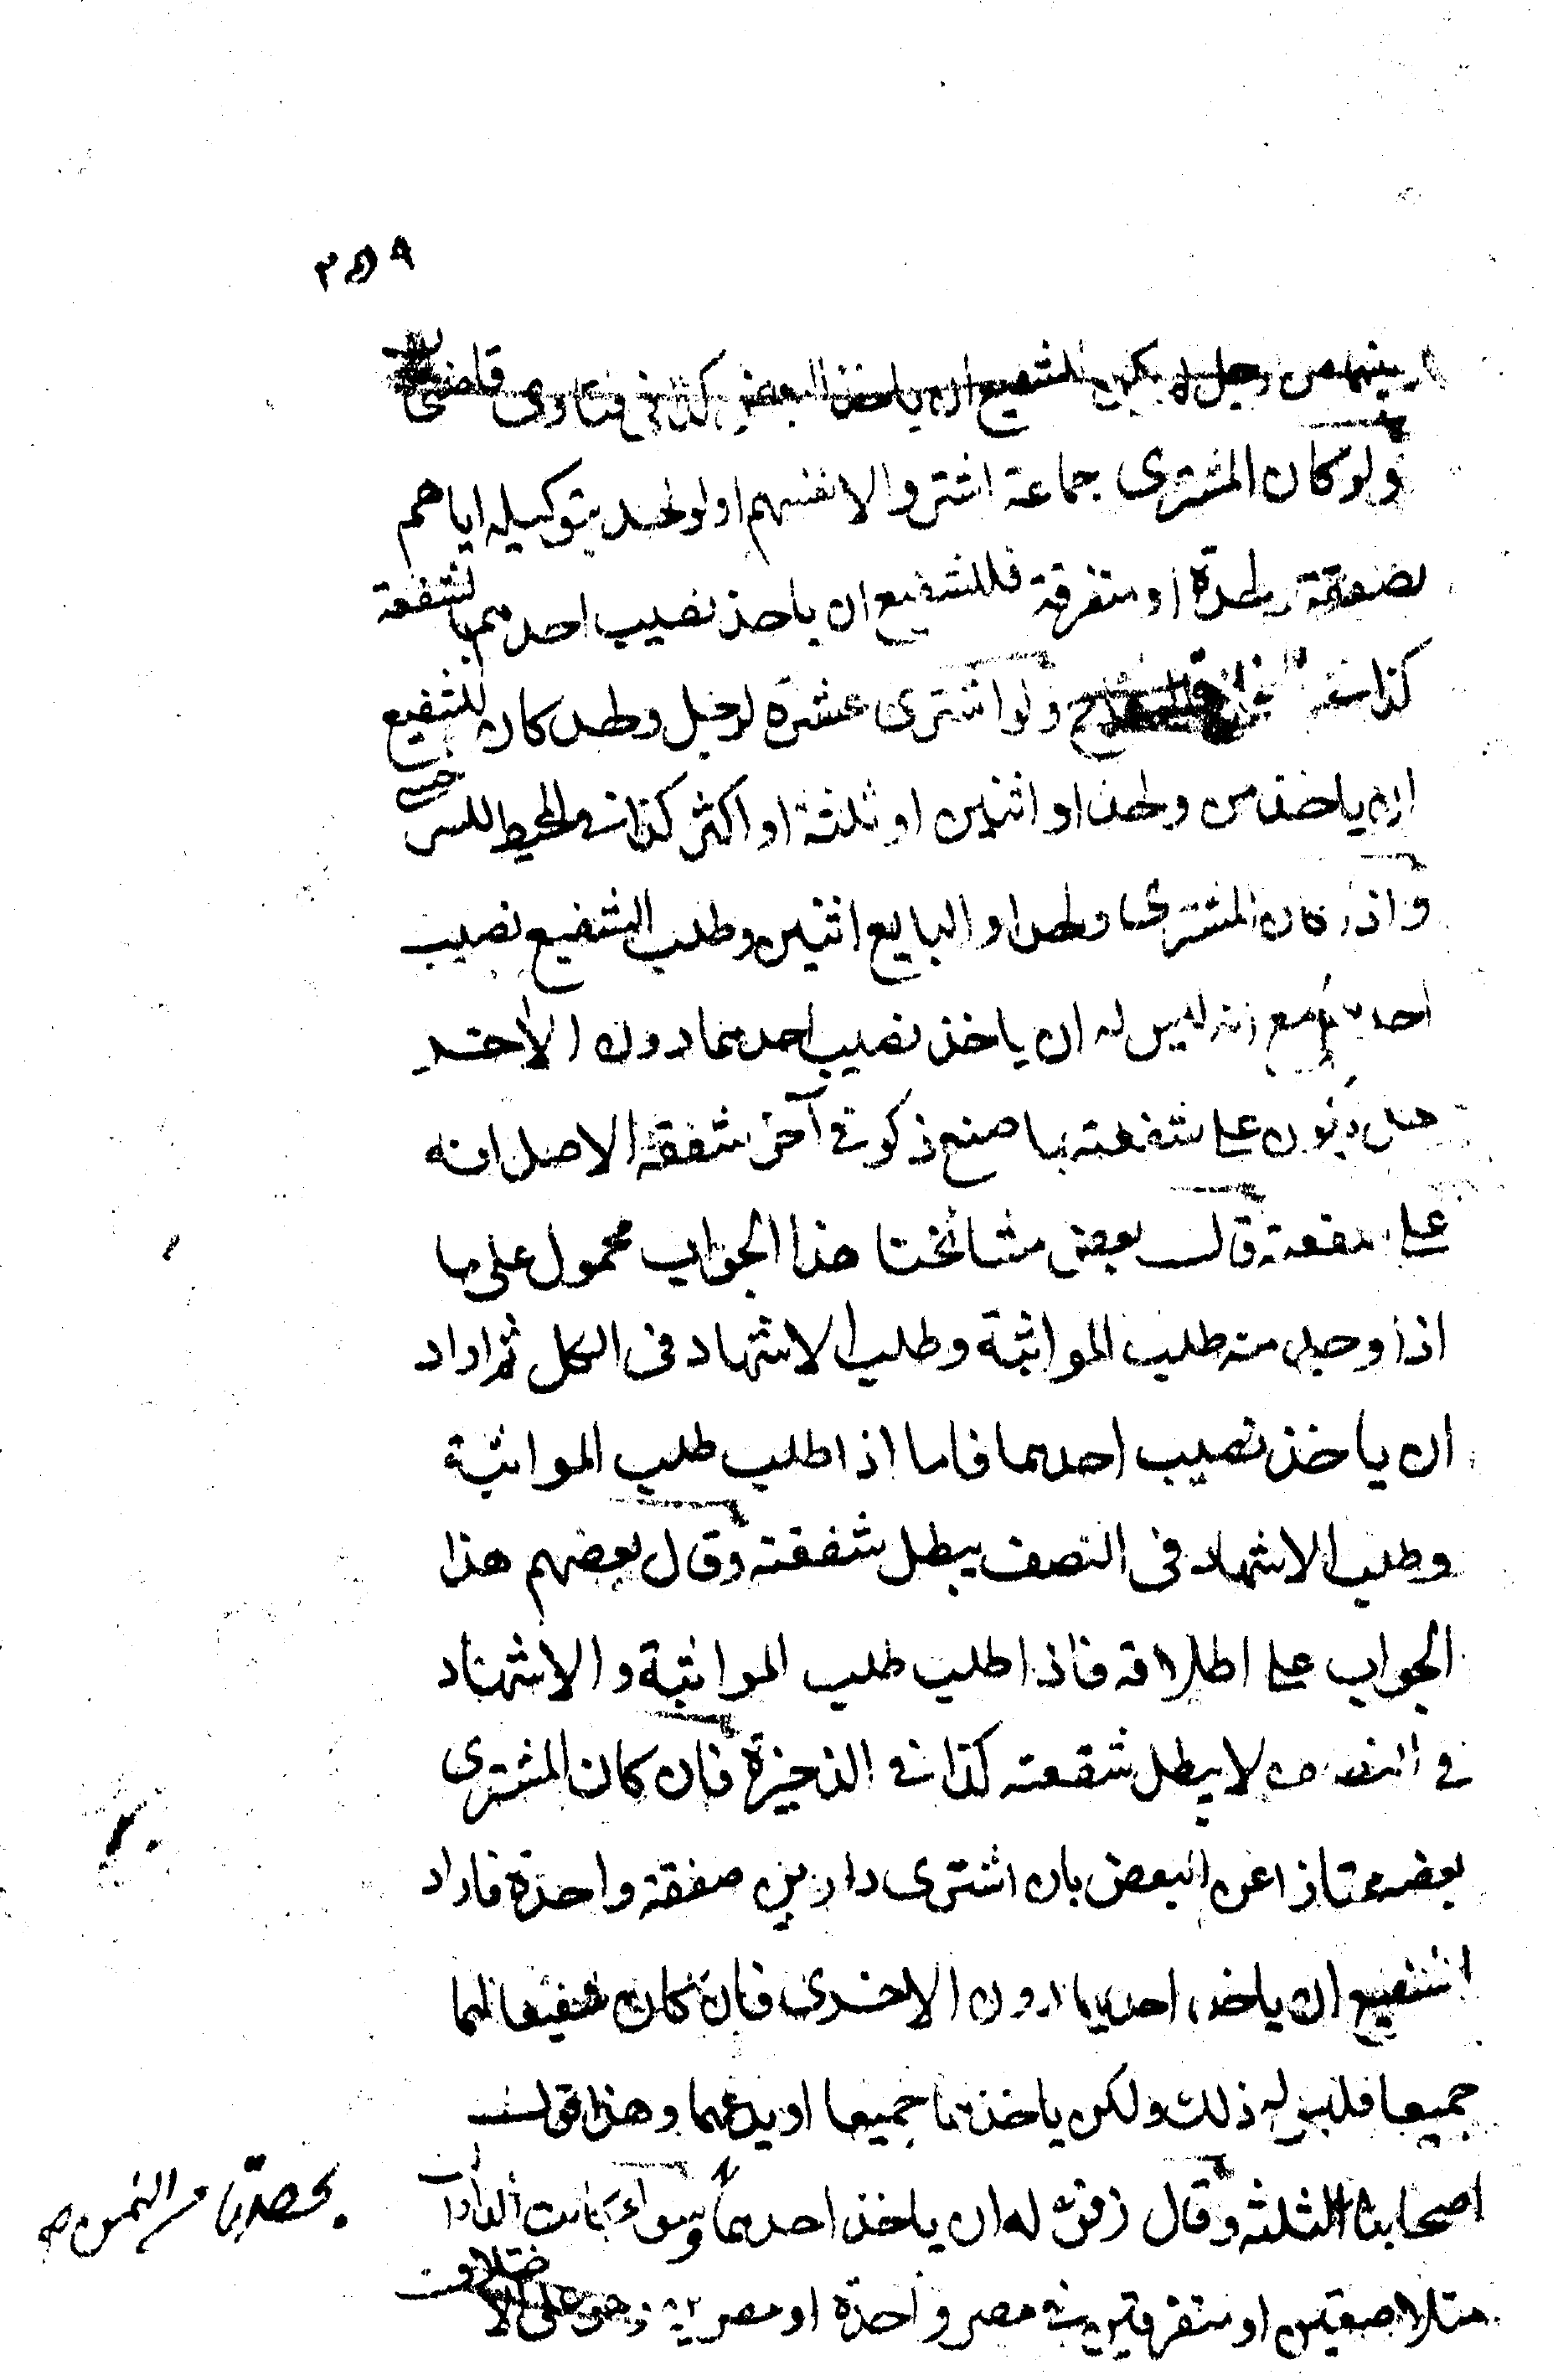 ٢٥٩
من رجل لم يكن للشفيع ان ياخذ البعض كذا فى فتاوى قاضى
ولو كان المشترى جماعة اشتروا لانفسهم او لواحد بتوكيله اياهم
بصفقة واحدة او متفرقة فللشفيع ان ياخذ نصيب احدهم بالشفعة
كذا فى ولو اشترى عشرة لرجل واحد كان للشفيع
ان ياخذ من واحد او اثنين او ثلثة او اكثر كذا فى المحيط للسرخسى
واذا كان المشترى واحدا والبايع اثنين وطلب الشفيع نصيب
احدهما مع انه ليس له ان ياخذ نصيب احدهما دون الاخر
هل يكون على شفعته بما صنع ذكر فى آخر شفعة الاصل انه
على شفعته قال بعض مشائخنا هذا الجواب محمول على ما
اذا وجد منه طلب المواثبة وطلب الاشهاد فى الكل ثم اراد
ان ياخذ نصيب احدهما فاما اذا طلب طلب المواثبة
وطلب الاشهاد فى النصف يبطل شفعته وقال بعضهم هذا
الجواب على اطلاقه فاذا طلب طلب المواثبة والاشهاد
فى النصف لا يبطل شفعته كذا فى الذخيرة فان كان المشترى
بعضه ممتازا عن البعض بان اشترى دارين صفقة واحدة فاراد
الشفيع ان ياخذ احديهما دون الاخرى فان كان شفيعا لهما
جميعا فليس له ذلك ولكن ياخذهما جميعا او يدعهما وهذا قول
اصحابنا الثلثة وقال زفر له ان ياخذ احدهما وسواء كانت الداران
بحصتها من الثمن صح
متلاصقتين او متفرقتين فى مصر واحدة او مصرين وهو على الاختلاف